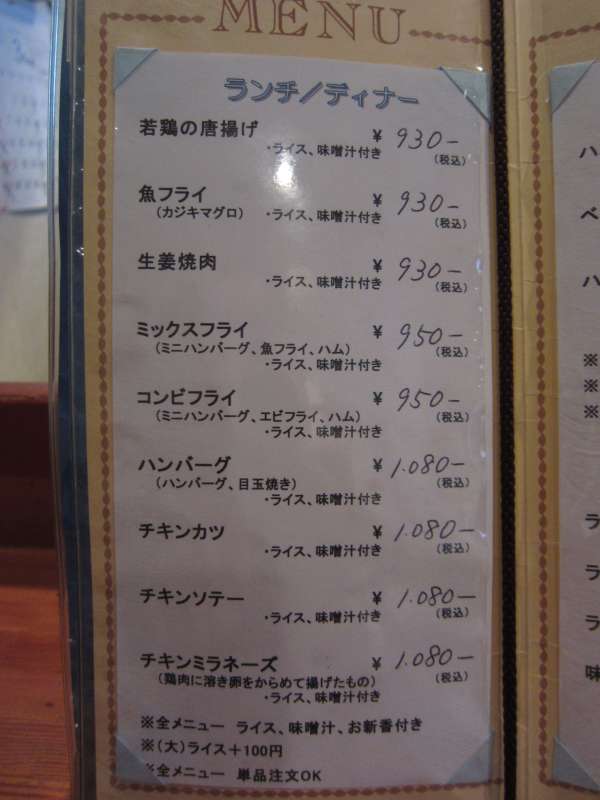 MENU
ランチ/ディナー
若鶏の唐揚げ ¥ 930-
・ライス、味噌汁付き (税込)
魚フライ ¥ 930-
(カジキマグロ) ・ライス、味噌汁付き (税込)
生姜焼肉 ¥ 930-
・ライス、味噌汁付き (税込)
ミックスフライ ¥ 950-
(ミニハンバーグ、魚フライ、ハム) (税込)
・ライス、味噌汁付き
コンビフライ ¥ 950-
(ミニハンバーグ、エビフライ、ハム) (税込)
・ライス、味噌汁付き
ハンバーグ ¥ 1.080-
(ハンバーグ、目玉焼き) (税込)
・ライス、味噌汁付き
チキンカツ ¥ 1.080-
・ライス、味噌汁付き (税込)
チキンソテー ¥ 1.080-
・ライス、味噌汁付き (税込)
チキンミラネーズ ¥ 1.080-
(鶏肉に溶き卵をからめて揚げたもの) (税込)
・ライス、味噌汁付き
※全メニュー ライス、味噌汁、お新香付き
※(大)ライス+100円
※全メニュー 単品注文OK
ハ
ベ
ハ
※
※
※
ラ
ラ
ラ
味